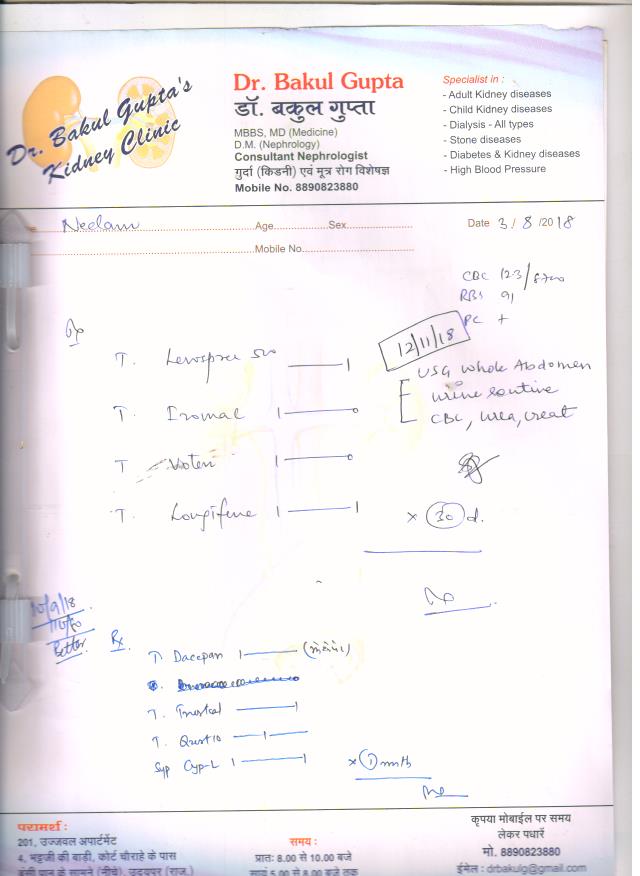 Dr. Bakul Gupta's
Kidney Clinic
Dr. Bakul Gupta
डॉ. बकुल गुप्ता
MBBS, MD (Medicine)
D.M. (Nephrology)
Consultant Nephrologist
गुर्दा (किडनी) एवं मूत्र रोग विशेषज्ञ
Mobile No. 8890823880
Specialist in :
- Adult Kidney diseases
- Child Kidney diseases
- Dialysis - All types
- Stone diseases
- Diabetes & Kidney diseases
- High Blood Pressure
Neelam Age Sex Date 3/8/2018
Mobile No.
CBC 12.3/8700
RBS 91
PC +
Rx
12/11/18
T. 500 — 1
USG Whole Abdomen
Urine routine
CBC, Urea, creat
T. 1 — 0
T 1 — 0
T. Longifene 1 — 1 x 30 d.
10/9/18
110/80
Better
Rx
T. 1 —
T. — 1
T. — 1 —
Syp Cyp-L 1 — 1 x 1 mnth
परामर्श :
201, उज्जवल अपार्टमेंट
4, भट्टजी की बाड़ी, कोर्ट चौराहे के पास
समय :
प्रातः 8.00 से 10.00 बजे
सायं 5.00 से 8.00 बजे तक
कृपया मोबाईल पर समय
लेकर पधारें
मो. 8890823880
ईमेल : drbakulg@gmail.com